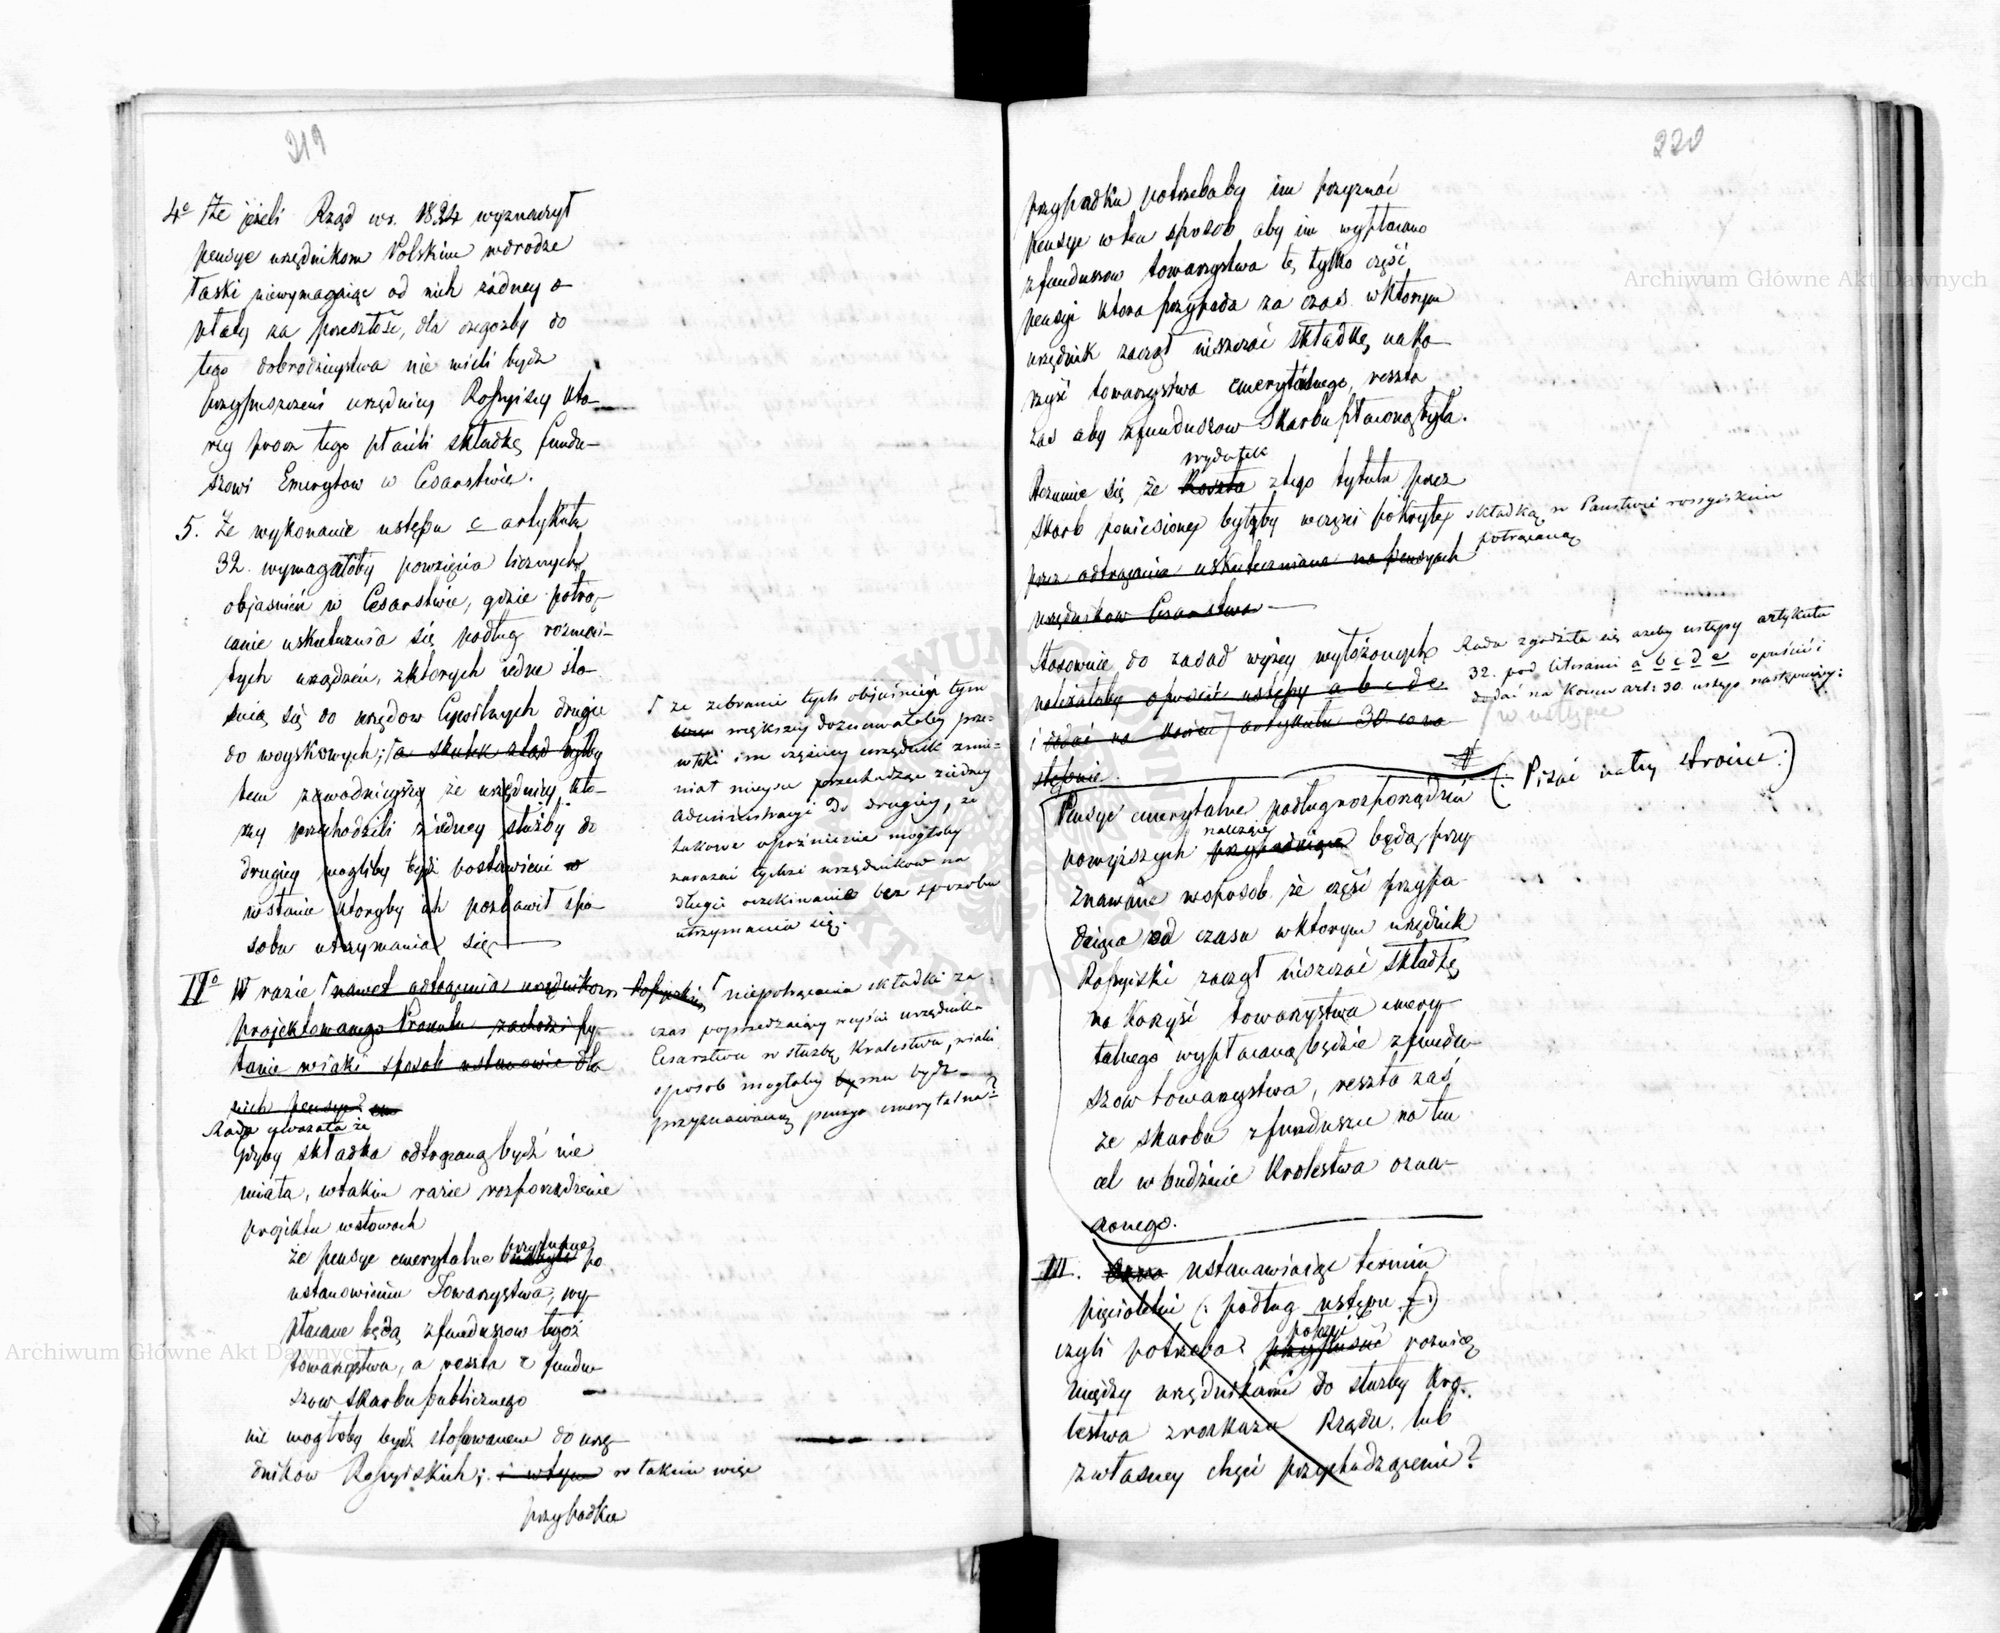 219
4° Że jeżeli Rząd w r. 1824 wyznaczył
pensye urzędnikom Polskim w drodze
łaski niewymagaiąc od nich żadney o-
płaty za przeszłość, dla czegożby do
tego dobrodzieystwa nie mieli bydź
przypuszczeni urzędnicy Rossyiscy kto-
rzy procz tego płacili składkę fundu-
szowi Emerytow w Cesarstwie.
5. Że wykonanie ustępu c artykułu
32. wymagałoby powzięcia licznych
objasnień w Cesarstwie, gdzie potrą-
canie uskutecznia się podług rozmai-
tych urządzeń, z ktorych iedne sto-
suią się do urzędow Cywilnych drugie
do woyskowych; a skutek ztąd byłby
ten że urzędnicy kto-
rzy przechodzili z iedney służby do
drugiey mogliby bydź postawieni w
w stanie ktoryby ich pozbawił spo-
sobu utrzymania się
że zebranie tych objaśnień tym
większey doznawałoby prze-
włoki im częściey urzędnik zmie-
niał mieysce przechodząc z iedney
administracyi do drugiey, że
takowe opoźnienie mogłoby
narazić tychże urzędnikow na
długie oczekiwanie bez sposobu
utrzymania się.
II° W razie nawet odtrącenia urzędnikom Rossyiskim
projektowanego Procentu zachodzi py-
tanie w iaki sposob ustanowić dla
nich pensye?
niepotrącania składki za
czas poprzedzaiący weyście urzędnika
Cesarstwa w służbę Krolestwa, w iaki
sposob mogłaby bydź
przyznawaną pensya emerytalna?
Rada uważała że
Gdyby składka odtrącaną bydź nie
miała, w takim razie rozporządzenie
projektu w słowach
że pensye emerytalne przyznane po
ustanowieniu Towarzystwa, wy-
płacane będą z funduszow tegoż
towarzystwa, a reszta z fundu-
szow skarbu publicznego
nie mogłoby bydź stosowanem do urzę-
dnikow Rossyiskich; i w tym w takim więc
przypadku
220
przypadku potrzebaby im przyznać
pensye w ten sposob aby im wypłacano
z funduszow towarzystwa tę tylko część
pensyi ktora przypada za czas w ktorym
urzędnik zaczął uiszczać składkę na ko-
rzyść towarzystwa emerytalnego, reszta
zaś aby z funduszow Skarbu płaconą była.
wydatek
Rozumie się że Reszta z tego tytułu przez
skarb poniesiony byłby w części pokryty składką w Panstwie rossyiskim
potrącaną
przez odtrącenia uskuteczniane na pensyach
urzędnikow Cesarstwa
Stosownie do zasad wyżey wyłożonych
należałoby opuścić ustępy a b c d e
i dodać na końcu artykułu 30. co na-
stępuie.
Rada zgodziła się ażeby ustępy artykułu
32. pod literami a b c d e opuścić i
dodać na koncu art: 30. ustęp następuiący:
w ustępie
(: Pisać na tey stronie :)
Pensye emerytalne podług rozporządzeń
należące
powyższych przypadaiące będą przy-
znawane w sposob że część przypa-
daiąca od czasu w ktorym urzędnik
Rossyiski zaczął uiszczać składkę
na korzyść towarzystwa emery-
talnego wypłacaną będzie z fundu-
szow towarzystwa, reszta zaś
ze skarbu z funduszu na ten
cel w budżecie Krolestwa ozna-
czonego.
III. ustanawiaiąc termin
pięcioletni (: podług ustępu f :)
czyli potrzeba różnicę
między urzędnikami do służby Kró-
lestwa z rozkazu Rządu, lub
z własney chęci przechodzącemi?
Archiwum Główne Akt Dawnych
Archiwum Główne Akt Dawnych